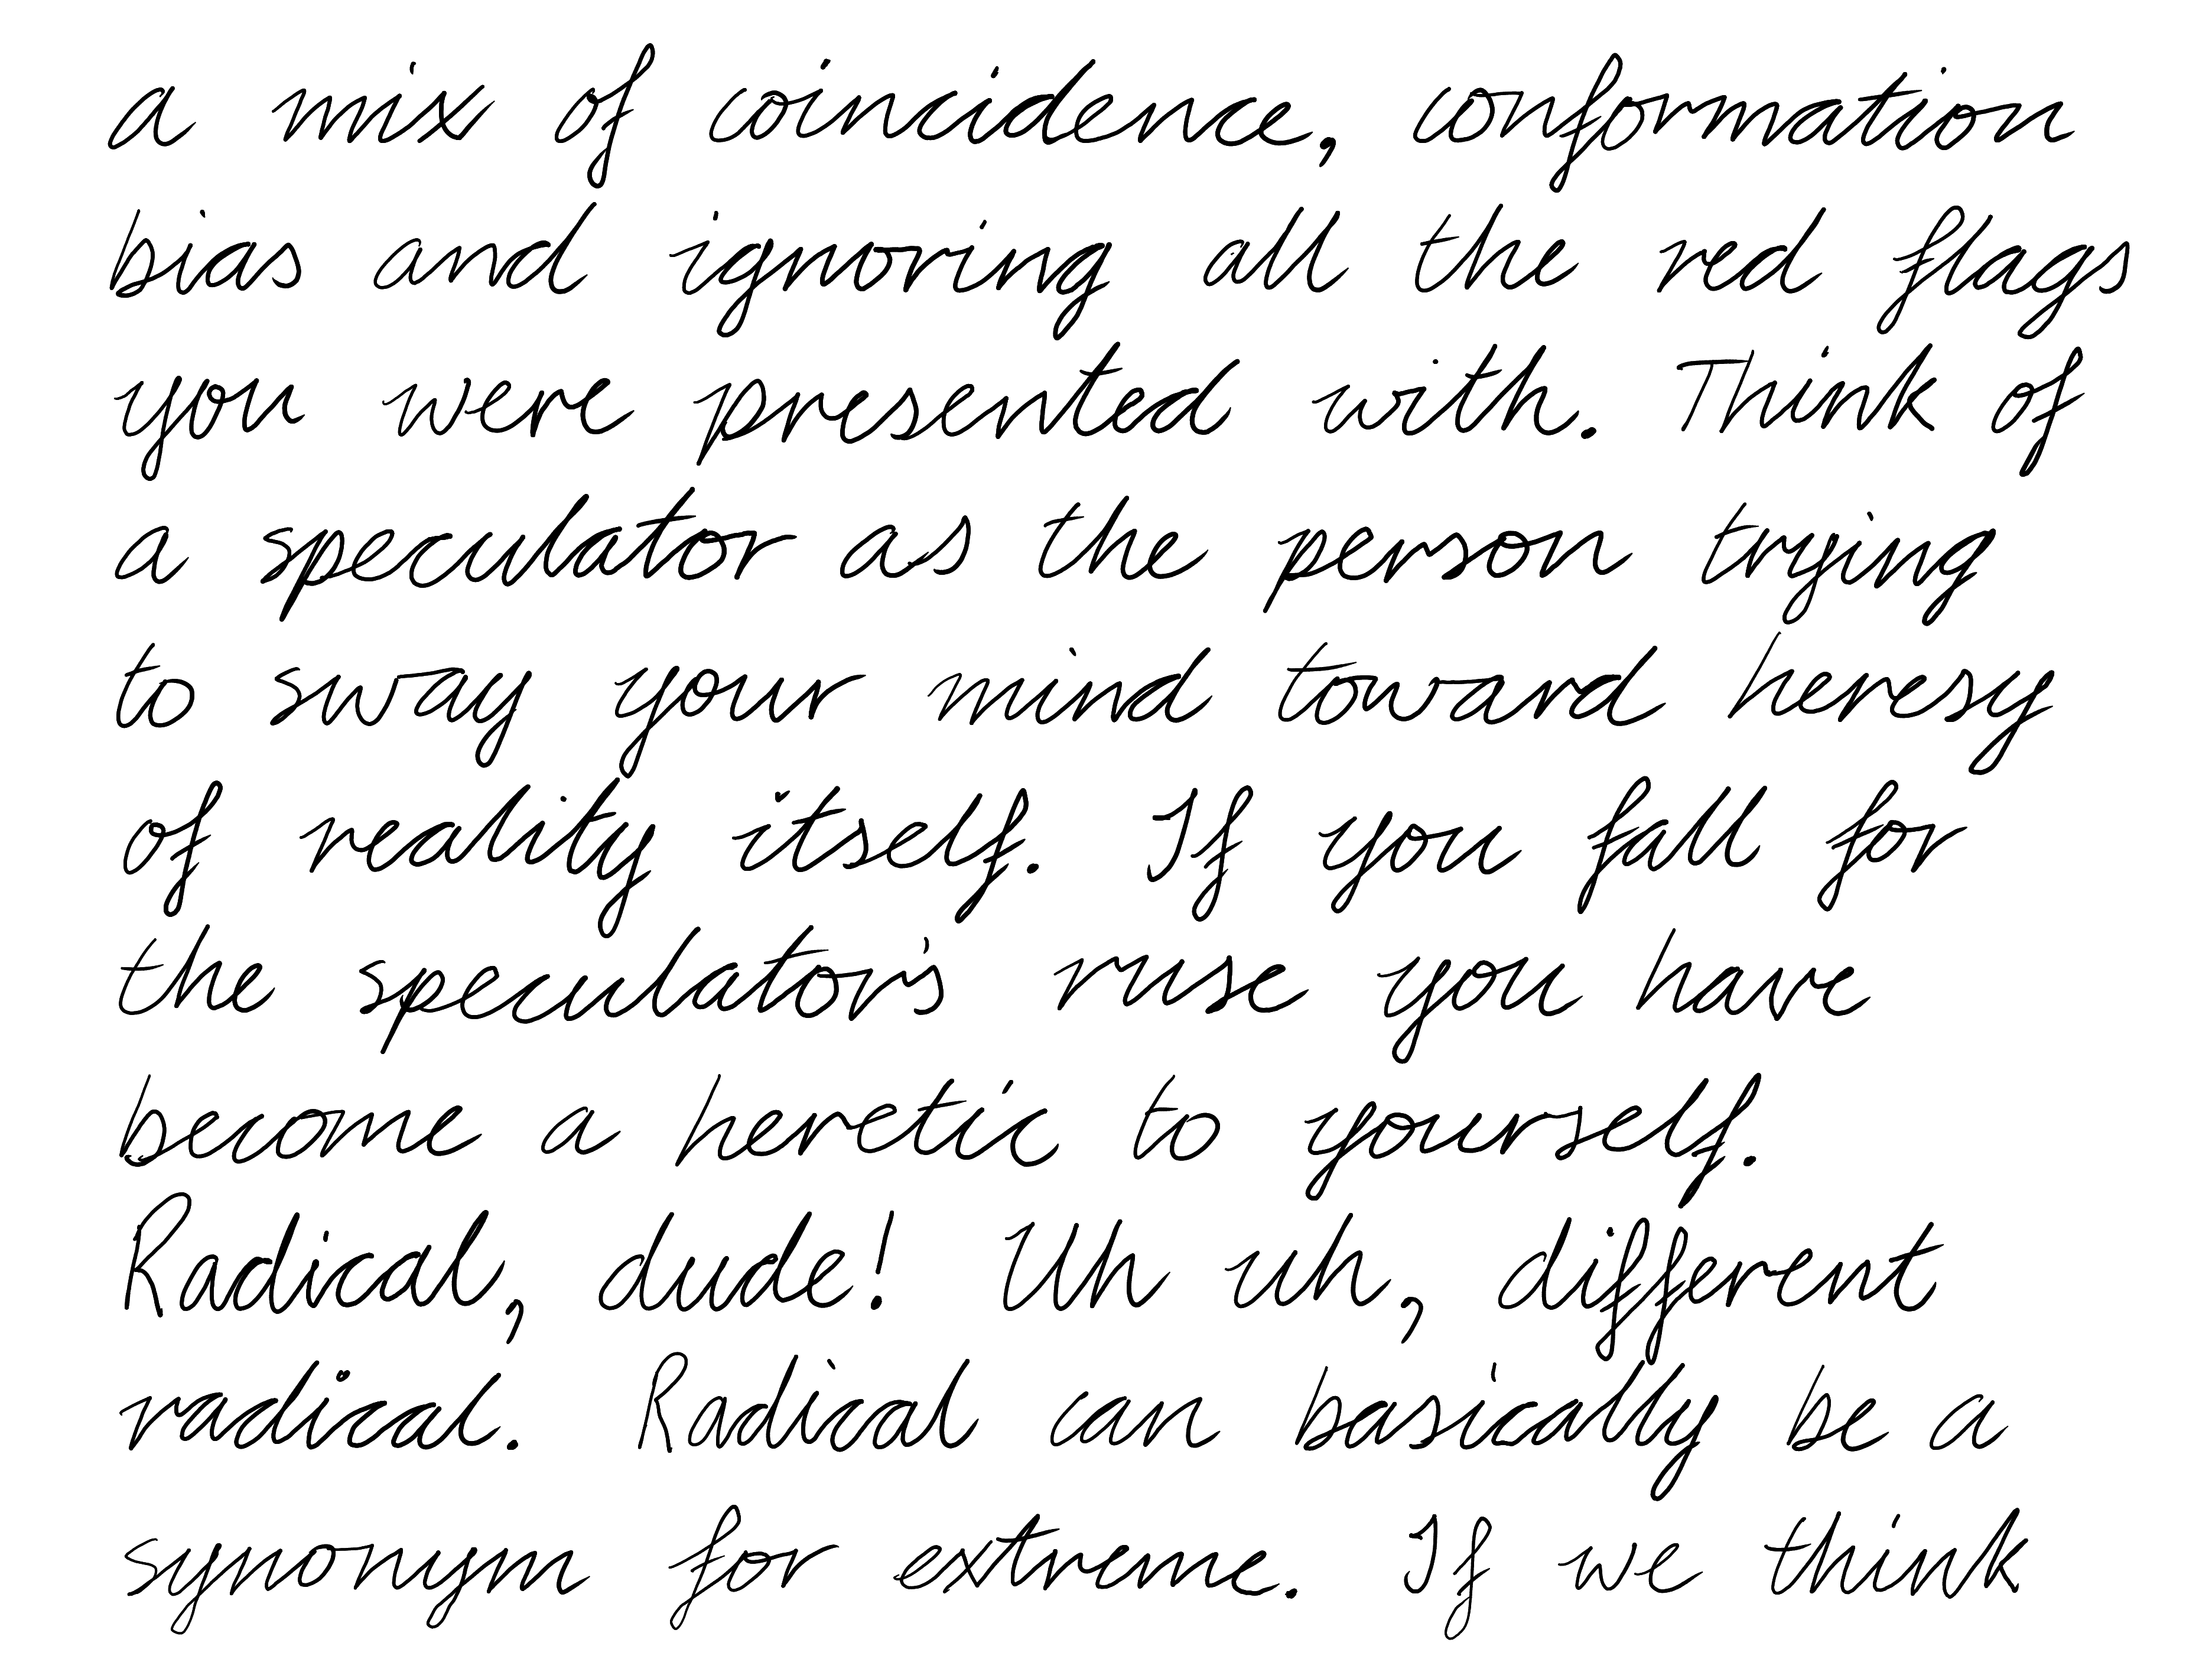 a mix of coincidence, conformation
bias and ignoring all the red flags
you were presented with. Think of
a speculator as the person trying
to sway your mind toward heresy
of reality itself. If you fall for
the speculator's ruse you have
become a heretic to yourself.
Radical, dude! Uh uh, different
radical. Radical can basically be a
synonym for extreme. If we think